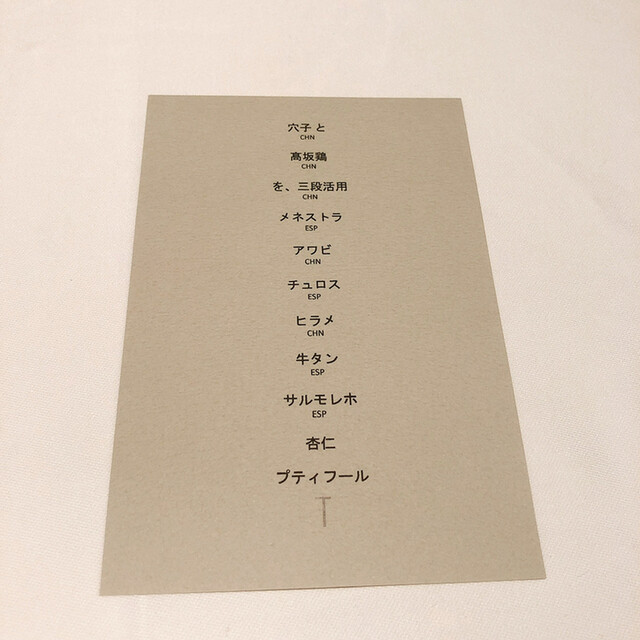 穴子と
CHN
高坂鶏
CHN
を、三段活用
CHN
メネストラ
ESP
アワビ
CHN
チュロス
ESP
ヒラメ
CHN
牛タン
ESP
サルモレホ
ESP
杏仁
プティフール
T